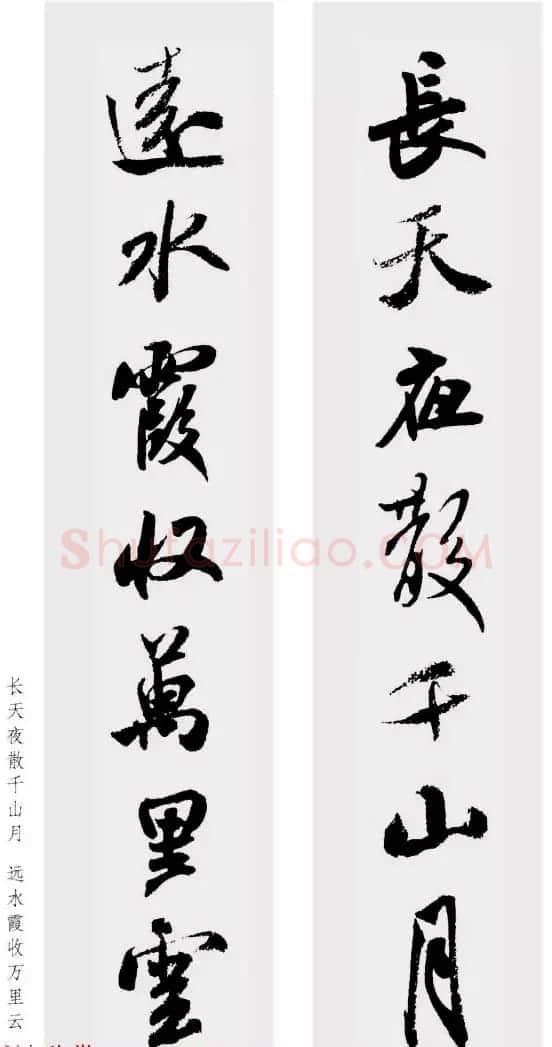 長天夜散千山月
遠水霞收萬里雲
长天夜散千山月 远水霞收万里云
Shufaziliao.COM